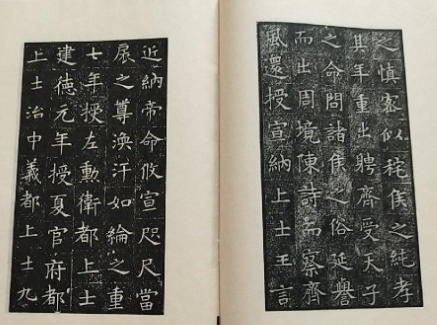 之慎密似秺侯之純孝
其年重出聘齊受天子
之命問諸侯之俗延譽
而出周境陳詩而察齊
風還授宣納上士王言
近納帝命攸宣咫尺當
扆之尊渙汗如綸之重
七年授左勳衛都上士
建德元年授夏官府都
上士治中義都上士九